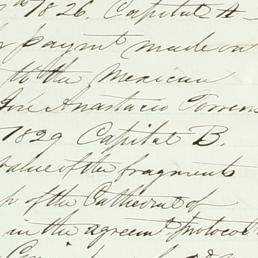 1826. Capital A
paymt made out
to the Mexican
Gov Anastacio Torrens
1829 Capital B.
value of the fragments
of the Cathedral of
in the agreemt protocol